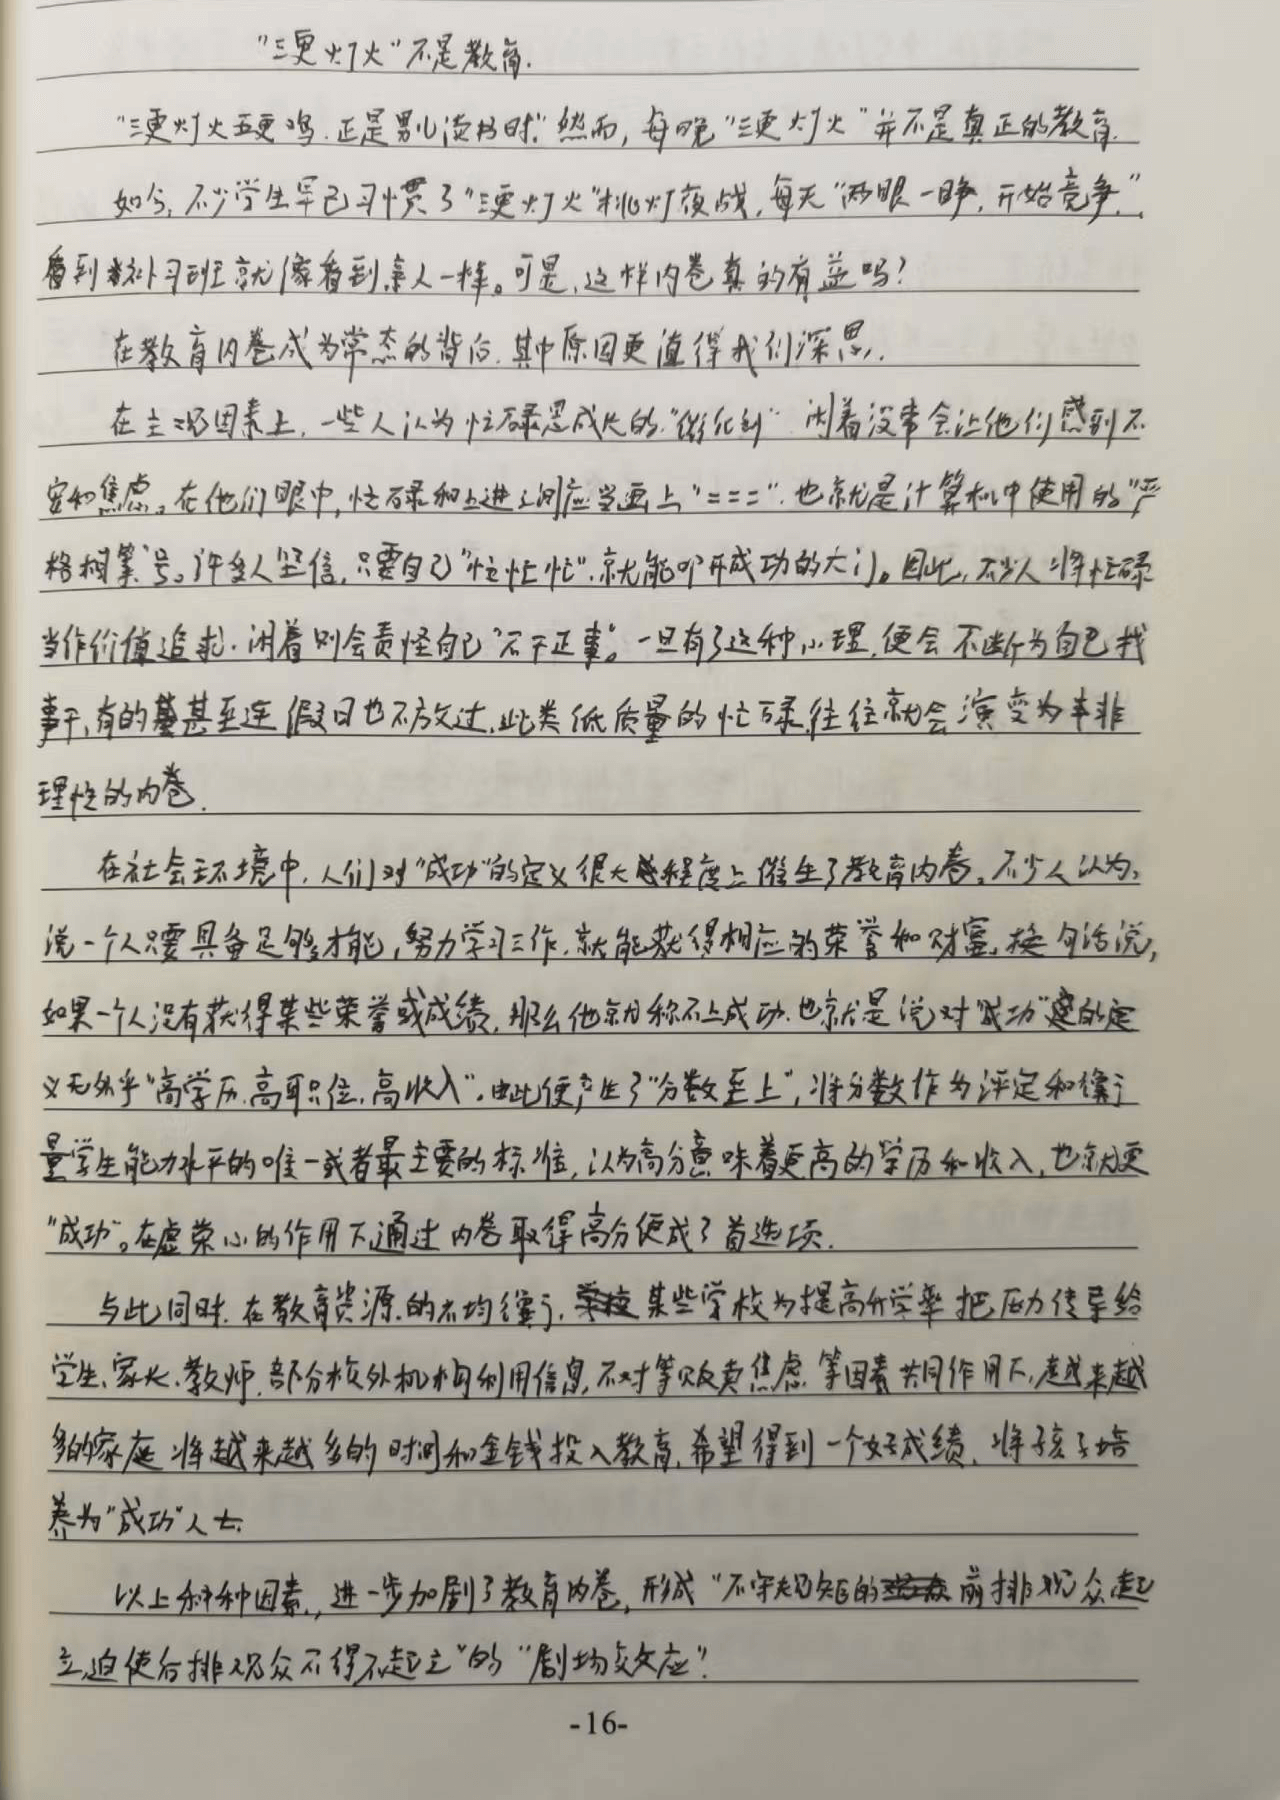 "三更灯火"不是教育.
"三更灯火五更鸡.正是男儿读书时."然而,每晚"三更灯火"并不是真正的教育.
如今,不少学生早已习惯了"三更灯火"挑灯夜战,每天"两眼一睁,开始竞争,"
看到补习班就像看到亲人一样。可是,这样内卷真的有益吗?
在教育内卷成为常态的背后.其中原因更值得我们深思.
在主观因素上,一些人认为忙碌是成长的"催化剂".闲着没事会让他们感到不
安和焦虑。在他们眼中,忙碌和上进之间应当画上"===".也就是计算机中使用的"严
格相等"号。许多人坚信,只要自己"忙忙忙".就能叩开成功的大门。因此,不少人将忙碌
当作价值追求.闲着则会责怪自己"不干正事"。一旦有了这种心理,便会不断为自己找
事干,有的甚至连假日也不放过.此类低质量的忙碌,往往就会演变为非
理性的内卷.
在社会环境中,人们对"成功"的定义很大程度上催生了教育内卷。不少人认为,
说一个人只要具备足够才能,努力学习工作.就能获得相应的荣誉和财富。换句话说,
如果一个人没有获得某些荣誉或成绩,那么他就称不上成功.也就是说对"成功"的定
义无外乎"高学历.高职位.高收入".由此便产生了"分数至上",将分数作为评定和衡
量学生能力水平的唯一或者最主要的标准,认为高分意味着更高的学历和收入,也就更
"成功"。在虚荣心的作用下通过内卷取得高分便成了首选项.
与此同时.在教育资源的不均衡,某些学校为提高升学率把压力传导给
学生、家长、教师.部分校外机构利用信息不对等贩卖焦虑等因素共同作用下,越来越
多的家庭将越来越多的时间和金钱投入教育,希望得到一个好成绩,将孩子培
养为"成功"人士.
以上种种因素,进一步加剧了教育内卷,形成"不守规矩的前排观众起
立,迫使后排观众不得不起立"的"剧场效应".
-16-